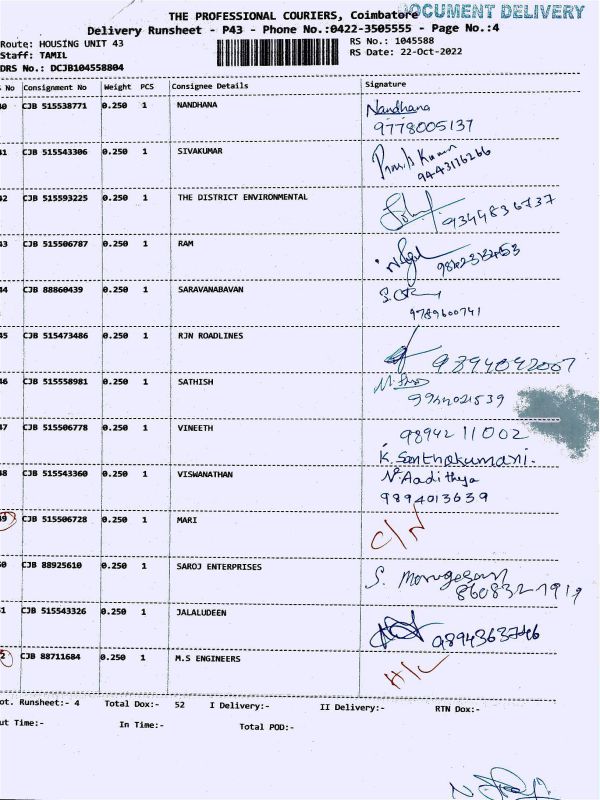 THE PROFESSIONAL COURIERS, Coimbatore
DOCUMENT DELIVERY
Delivery Runsheet - P43 - Phone No.:0422-3505555 - Page No.:4
Route: HOUSING UNIT 43
RS No.: 1045588
Staff: TAMIL
RS Date: 22-Oct-2022
DRS No.: DCJB104558804
No Consignment No Weight PCS Consignee Details Signature
40 CJB 515538771 0.250 1 NANDHANA Nandhana
9778005137
41 CJB 515543306 0.250 1 SIVAKUMAR
9443116266
42 CJB 515593225 0.250 1 THE DISTRICT ENVIRONMENTAL 9344836737
43 CJB 515506787 0.250 1 RAM
44 CJB 88860439 0.250 1 SARAVANABAVAN
9789600741
45 CJB 515473486 0.250 1 RJN ROADLINES
9894092067
46 CJB 515558981 0.250 1 SATHISH
9944021539
47 CJB 515506778 0.250 1 VINEETH 98942 11002
K. Santhakumari.
48 CJB 515543360 0.250 1 VISWANATHAN N. Aadithya
9894013639
49 CJB 515506728 0.250 1 MARI C/N
50 CJB 88925610 0.250 1 SAROJ ENTERPRISES S. Morugesan
860832 1919
51 CJB 515543326 0.250 1 JALALUDEEN
9894363746
52 CJB 88711684 0.250 1 M.S ENGINEERS H/L
ot. Runsheet:- 4 Total Dox:- 52 I Delivery:- II Delivery:- RTN Dox:-
ut Time:- In Time:- Total POD:-